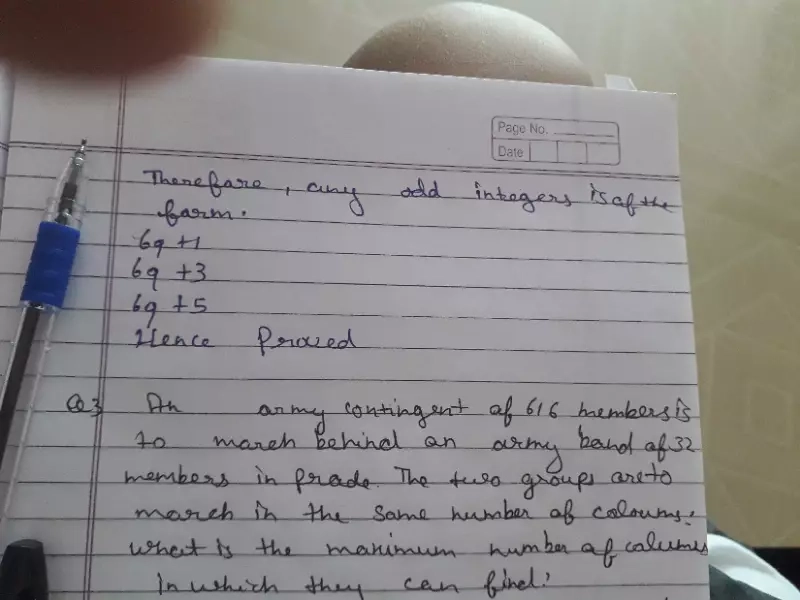 Page No.
Date
Therefare, any odd integers is af the
farm.
6q +1
6q +3
6q +5
Hence Proved
Q3 An army contingent af 616 members is
to march behind an army band af 32
members in prade. The two groups are to
march in the same number af coloums.
what is the maximum number af calums
in which they can find?